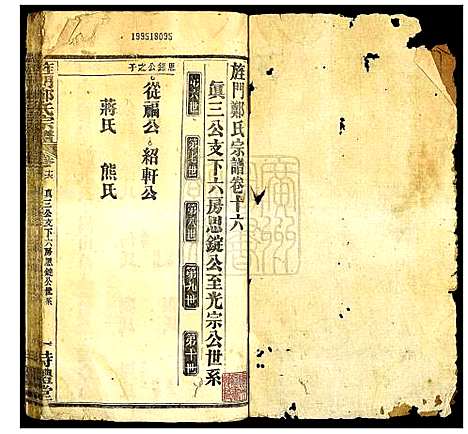 199518095
旌門鄭氏宗譜卷十六
眞三公支下六房恩錠公至光宗公世系
第六世 第七世 第八世 第九世 第十世
恩錠公之子
從福公 紹軒公
蔣氏 熊氏
旌門鄭氏宗譜
卷十六
真三公支下六房恩錠公世系
一